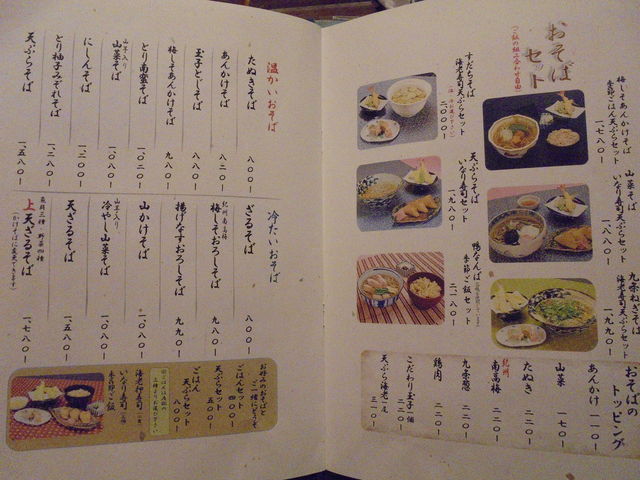 おそば
セット
梅しそあんかけそば
季節ごはん天ぷらセット
一、七八〇ー
山菜そば
いなり寿司天ぷらセット
一、八八〇ー
九条ねぎそば
海老寿司天ぷらセット
一、九九〇ー
すだちそば
海老寿司天ぷらセット
二、〇〇〇ー
天ぷらそば
いなり寿司セット
一、九八〇ー
鴨なんば
季節ご飯セット
二、一八〇ー
おそばの
トッピング
あんかけ 一一〇ー
山菜 一七〇ー
たぬき 二二〇ー
紀州
南高梅 二二〇ー
九条葱 二二〇ー
鶏肉 二二〇ー
こだわり玉子一個 二二〇ー
天ぷら海老一尾 三一〇ー
温かいおそば
たぬきそば 八〇〇ー
あんかけそば 八二〇ー
玉子とじそば 八八〇ー
梅しそあんかけそば 九八〇ー
とり南蛮そば 一、〇二〇ー
山菜そば 一、〇八〇ー
にしんそば 一、二〇〇ー
とり柚子みぞれそば 一、二八〇ー
天ぷらそば 一、五八〇ー
冷たいおそば
ざるそば 八〇〇ー
紀州南高梅
梅しそおろしそば 九八〇ー
揚げなすおろしそば 九九〇ー
山かけそば 一、〇八〇ー
冷やし山菜そば 一、〇八〇ー
天ざるそば 一、五八〇ー
上天ざるそば 一、七八〇ー
お好みのおそばと
ご一緒にどうぞ
ごはんセット 四〇〇ー
天ぷらセット 五〇〇ー
ごはん
天ぷらセット 八〇〇ー
海老押寿司
いなり寿司
季節ご飯